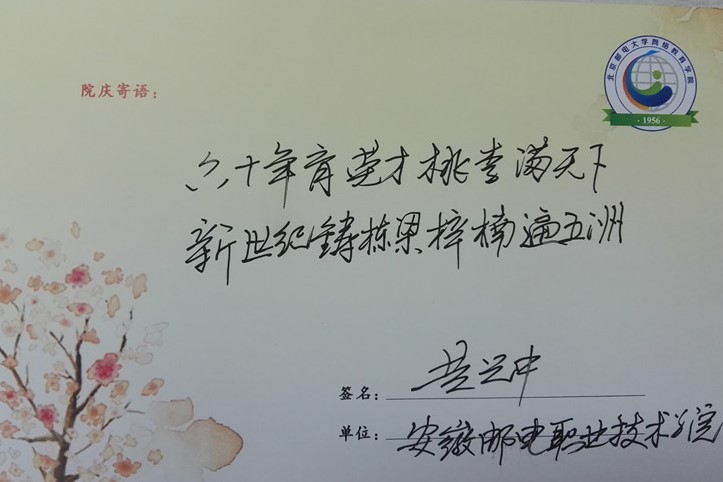 北京邮电大学网络教育学院
·1956·
院庆寄语:
六十年育英才桃李满天下
新世纪铸栋梁梓楠遍五洲
签名:
单位: 安徽邮电职业技术学院